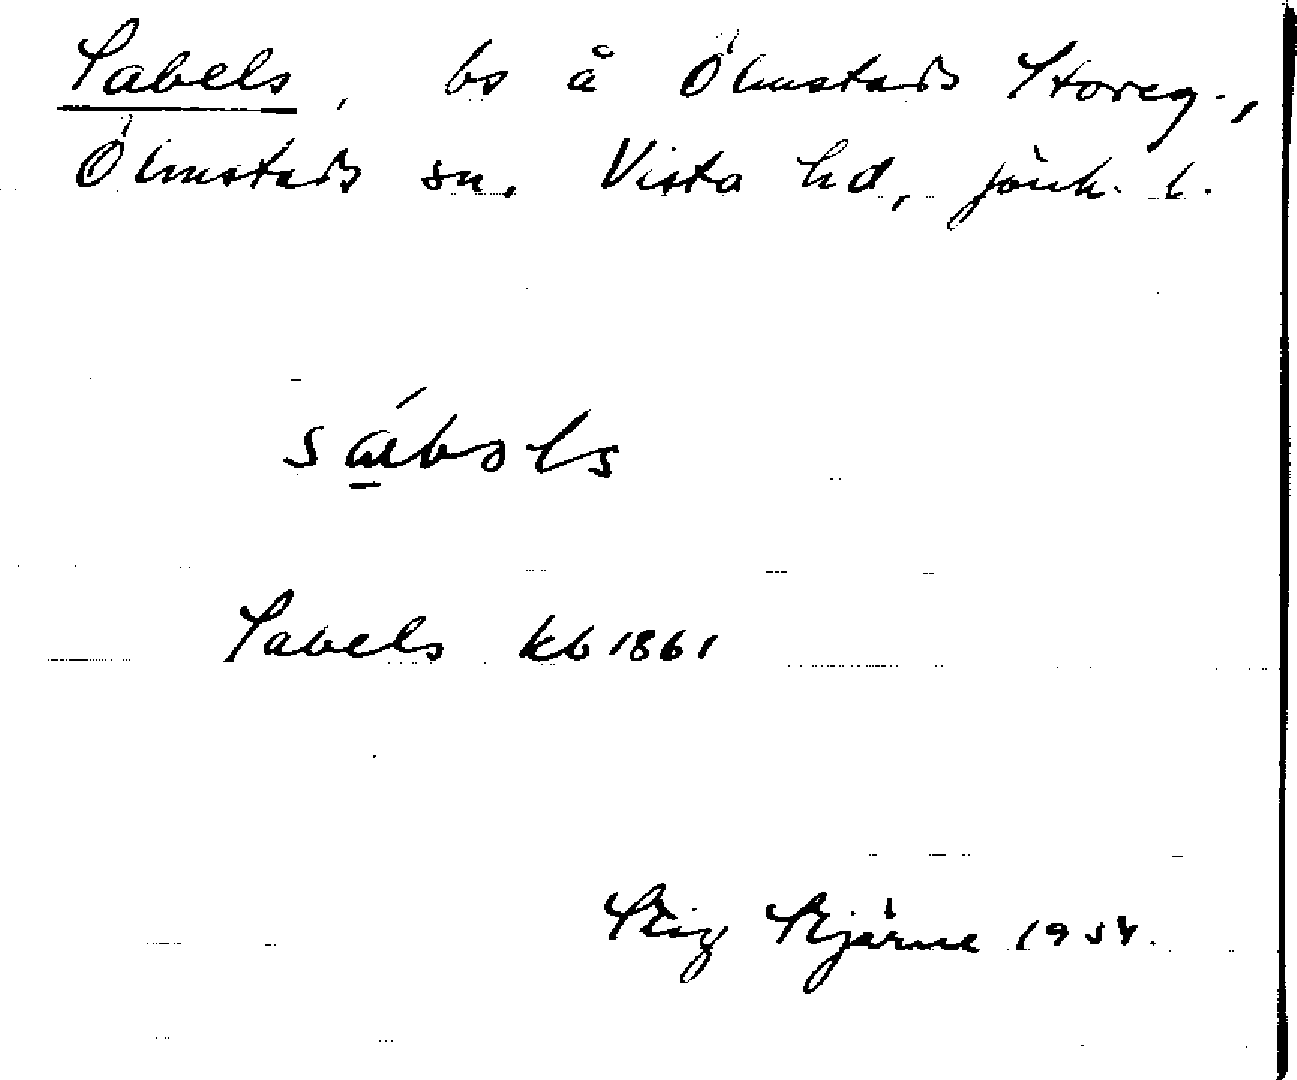 Sabels, bs å Ölmstads Storeg.,
Ölmstads sn. Vista hd, Jönk. l.
sábəls
Sabels kb 1861
Stig Stjärne 1954.